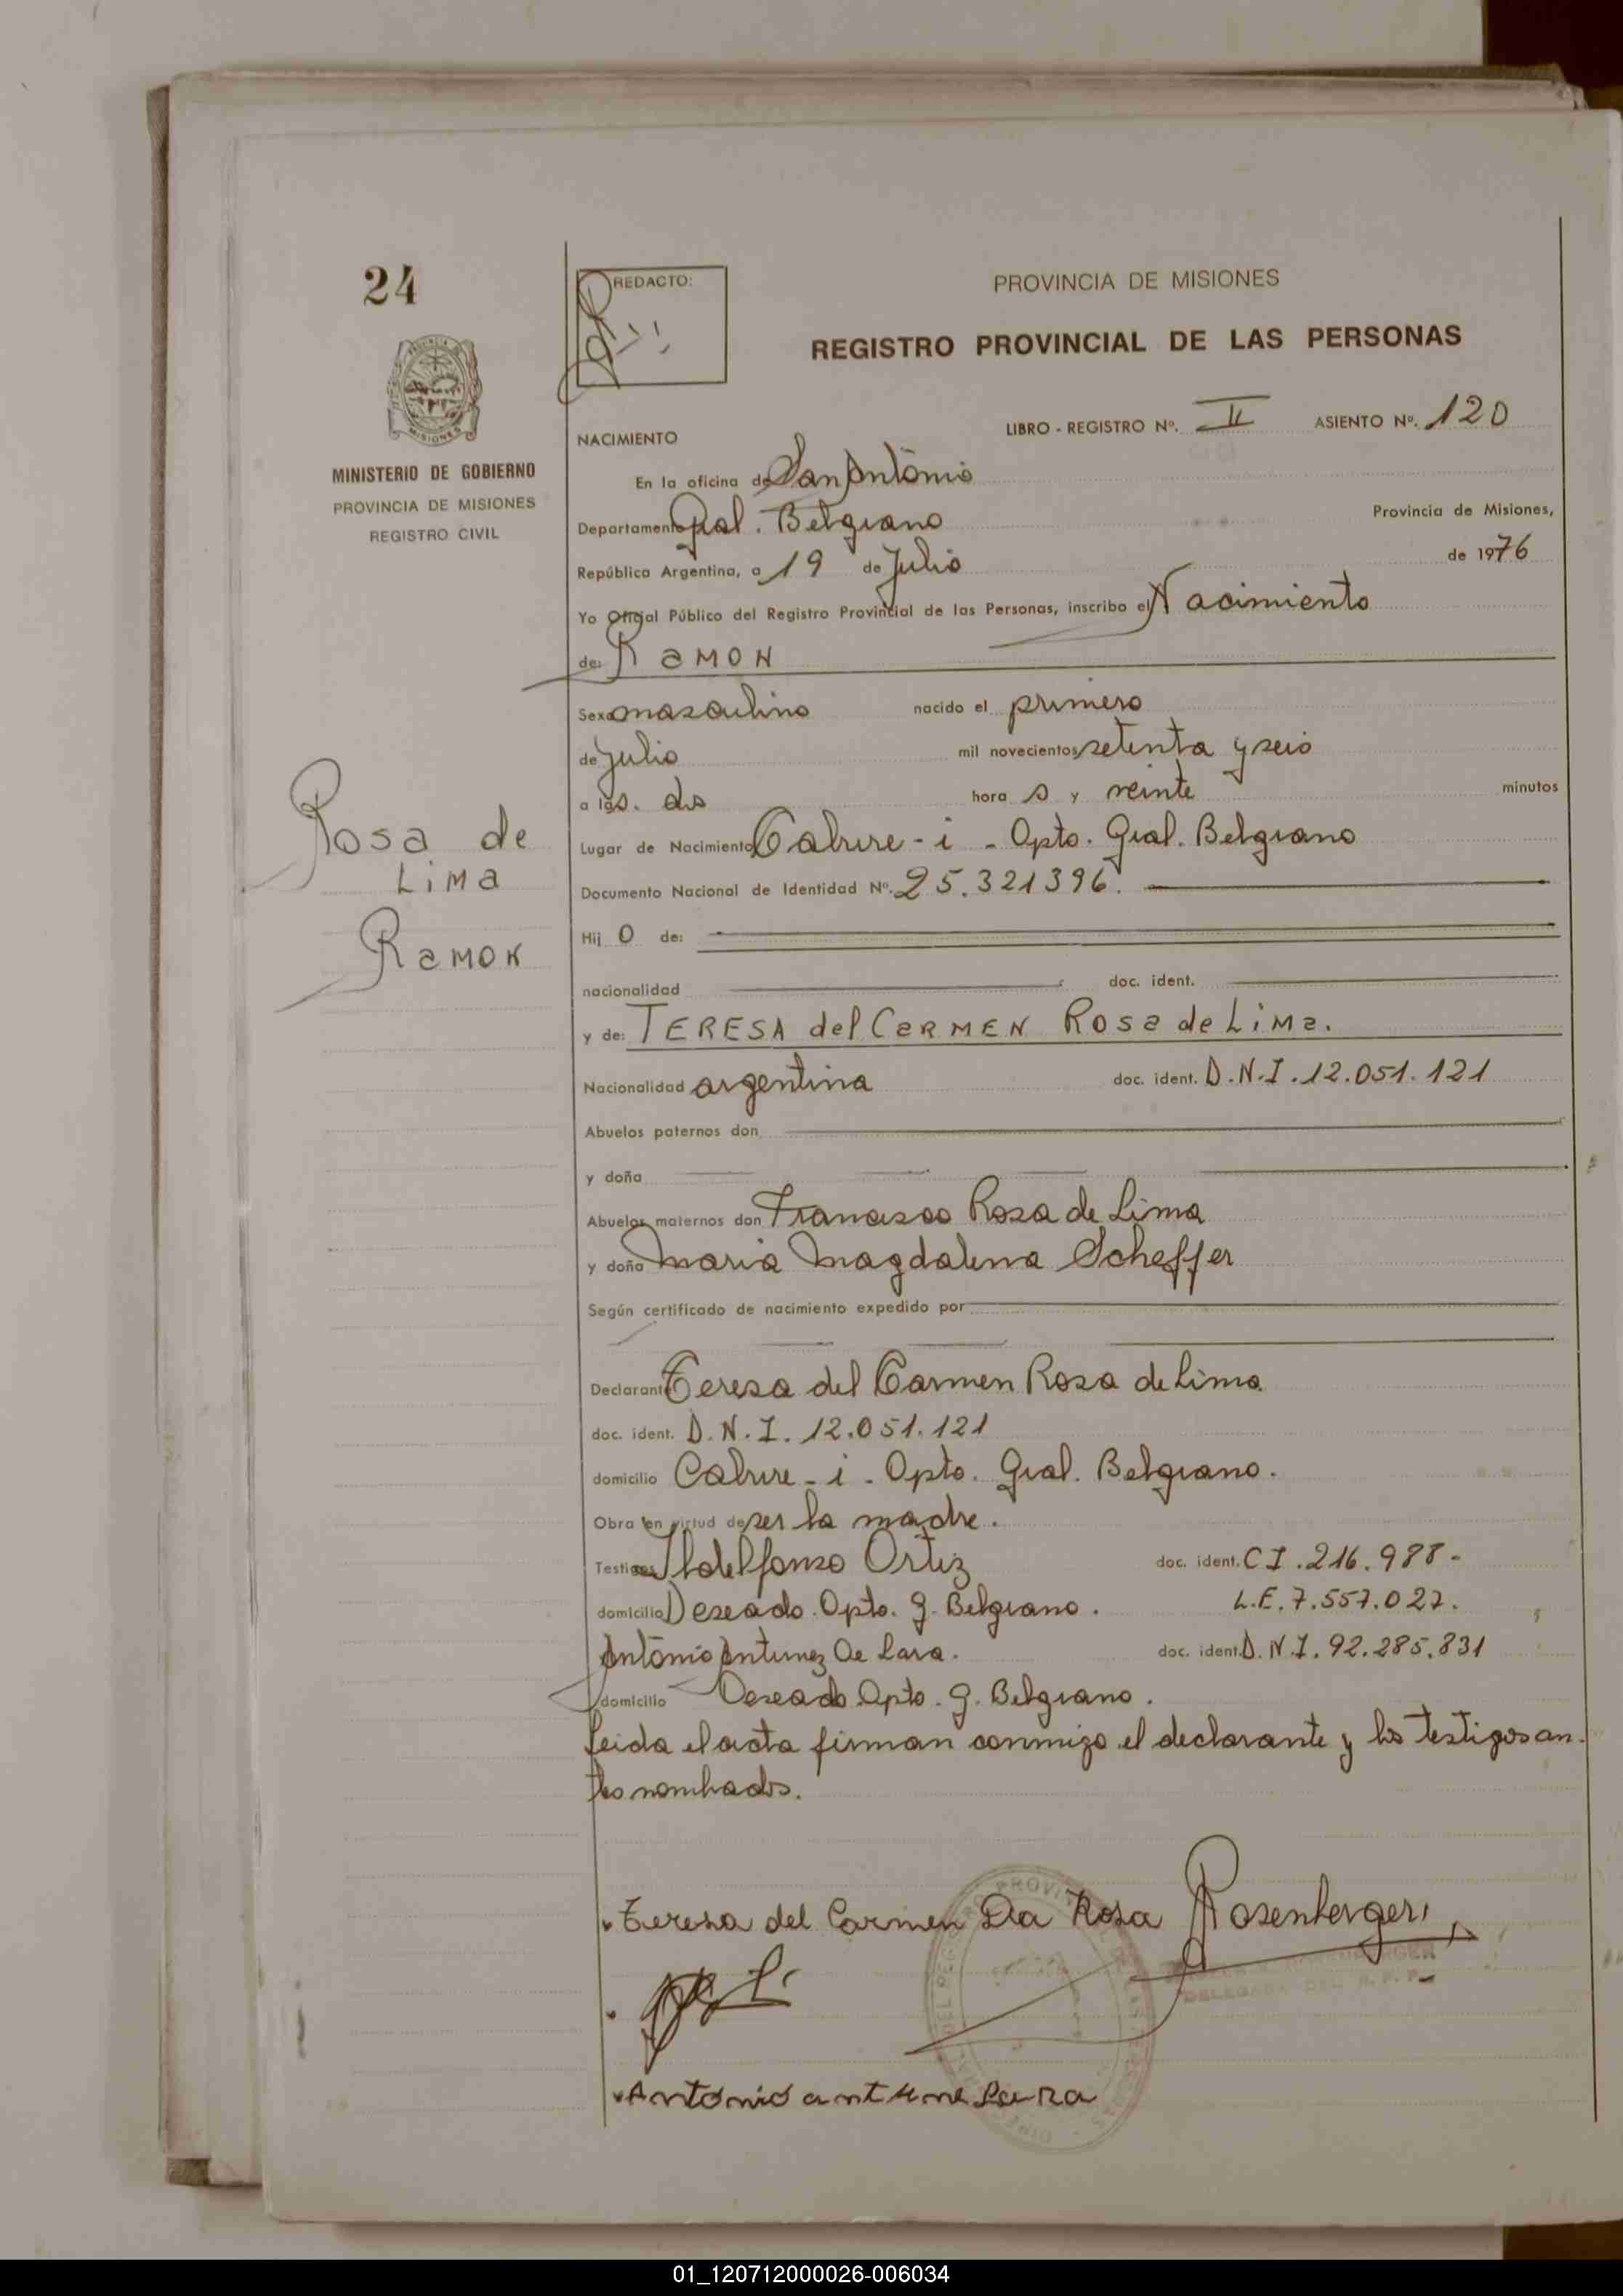 24
REDACTO:
PROVINCIA DE MISIONES
REGISTRO PROVINCIAL DE LAS PERSONAS
MISIONES
MINISTERIO DE GOBIERNO
PROVINCIA DE MISIONES
REGISTRO CIVIL
LIBRO - REGISTRO Nº. II ASIENTO Nº. 120
NACIMIENTO
En la oficina de San Antonio
Departamento Gral. Belgrano Provincia de Misiones,
República Argentina, a 19 de Julio de 1976
Yo Oficial Público del Registro Provincial de las Personas, inscribo el Nacimiento
de: RAMON
Sexo masculino nacido el primero
de julio mil novecientos setenta y seis
a las. dos hora s y veinte minutos
Rosa de
Lima
Ramon
Lugar de Nacimiento Cabure-i - Dpto. Gral. Belgrano
Documento Nacional de Identidad Nº. 25.321396.
Hij o de:
nacionalidad doc. ident.
y de: TERESA del CARMEN Rosa de Lima.
Nacionalidad argentina doc. ident. D.N.I. 12.051.121
Abuelos paternos don
y doña
Abuelos maternos don Francisco Rosa de Lima
y doña Maria Magdalena Scheffer
Según certificado de nacimiento expedido por
Declarante Teresa del Carmen Rosa de Lima
doc. ident. D.N.I. 12.051.121
domicilio Cabure-i - Dpto. Gral. Belgrano.
Obra en virtud de ser la madre.
Testigos Ildelfonso Ortiz doc. ident. CI.216.988-
domicilio Deseado. Dpto. G. Belgrano. L.E. 7.557.027.
Antonio Antunez De Lara. doc. ident. D.N.I. 92.285.831
domicilio Deseado Dpto. G. Belgrano.
Leida el acta firman conmigo el declarante y los testigos an-
tes nombrados.
Teresa del Carmen Da Rosa Rosenberger
DELEGADA DEL R. P. P.
Antonio antune Lara
01_120712000026-006034